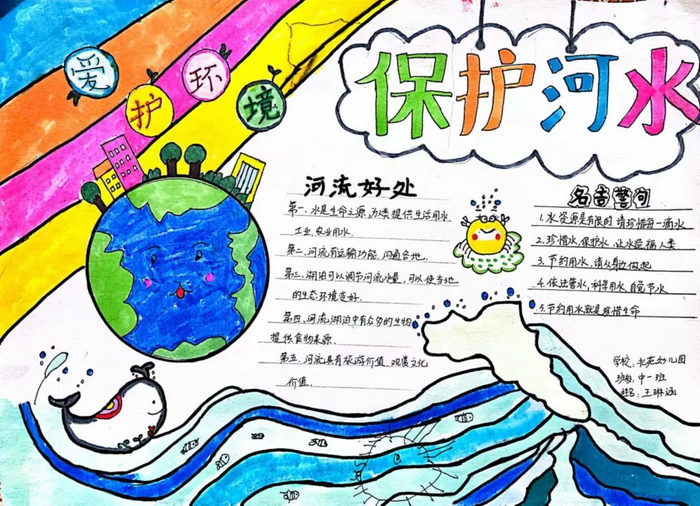 爱护环境
保护河水
河流好处
第一.水是生命之源,为人类提供生活用水
工业.农业用水.
第二.河流有运输功能,沟通各地.
第三.湖泊可以调节河流水量,可以使当地
的生态环境变好.
第四.河流.湖泊中有众多的生物
提供食物来源.
第五.河流具有旅游价值、观赏文化
价值.
名言警句
1.水资源是有限的 请珍惜每一滴水
2.珍惜水.保护水.让水造福人类
3.节约用水,请从身边做起
4.依法管水,科学用水,自觉节水
5.节约用水就是珍惜生命
学校:长苑幼儿园
班级:中一班
姓名:王琳涵